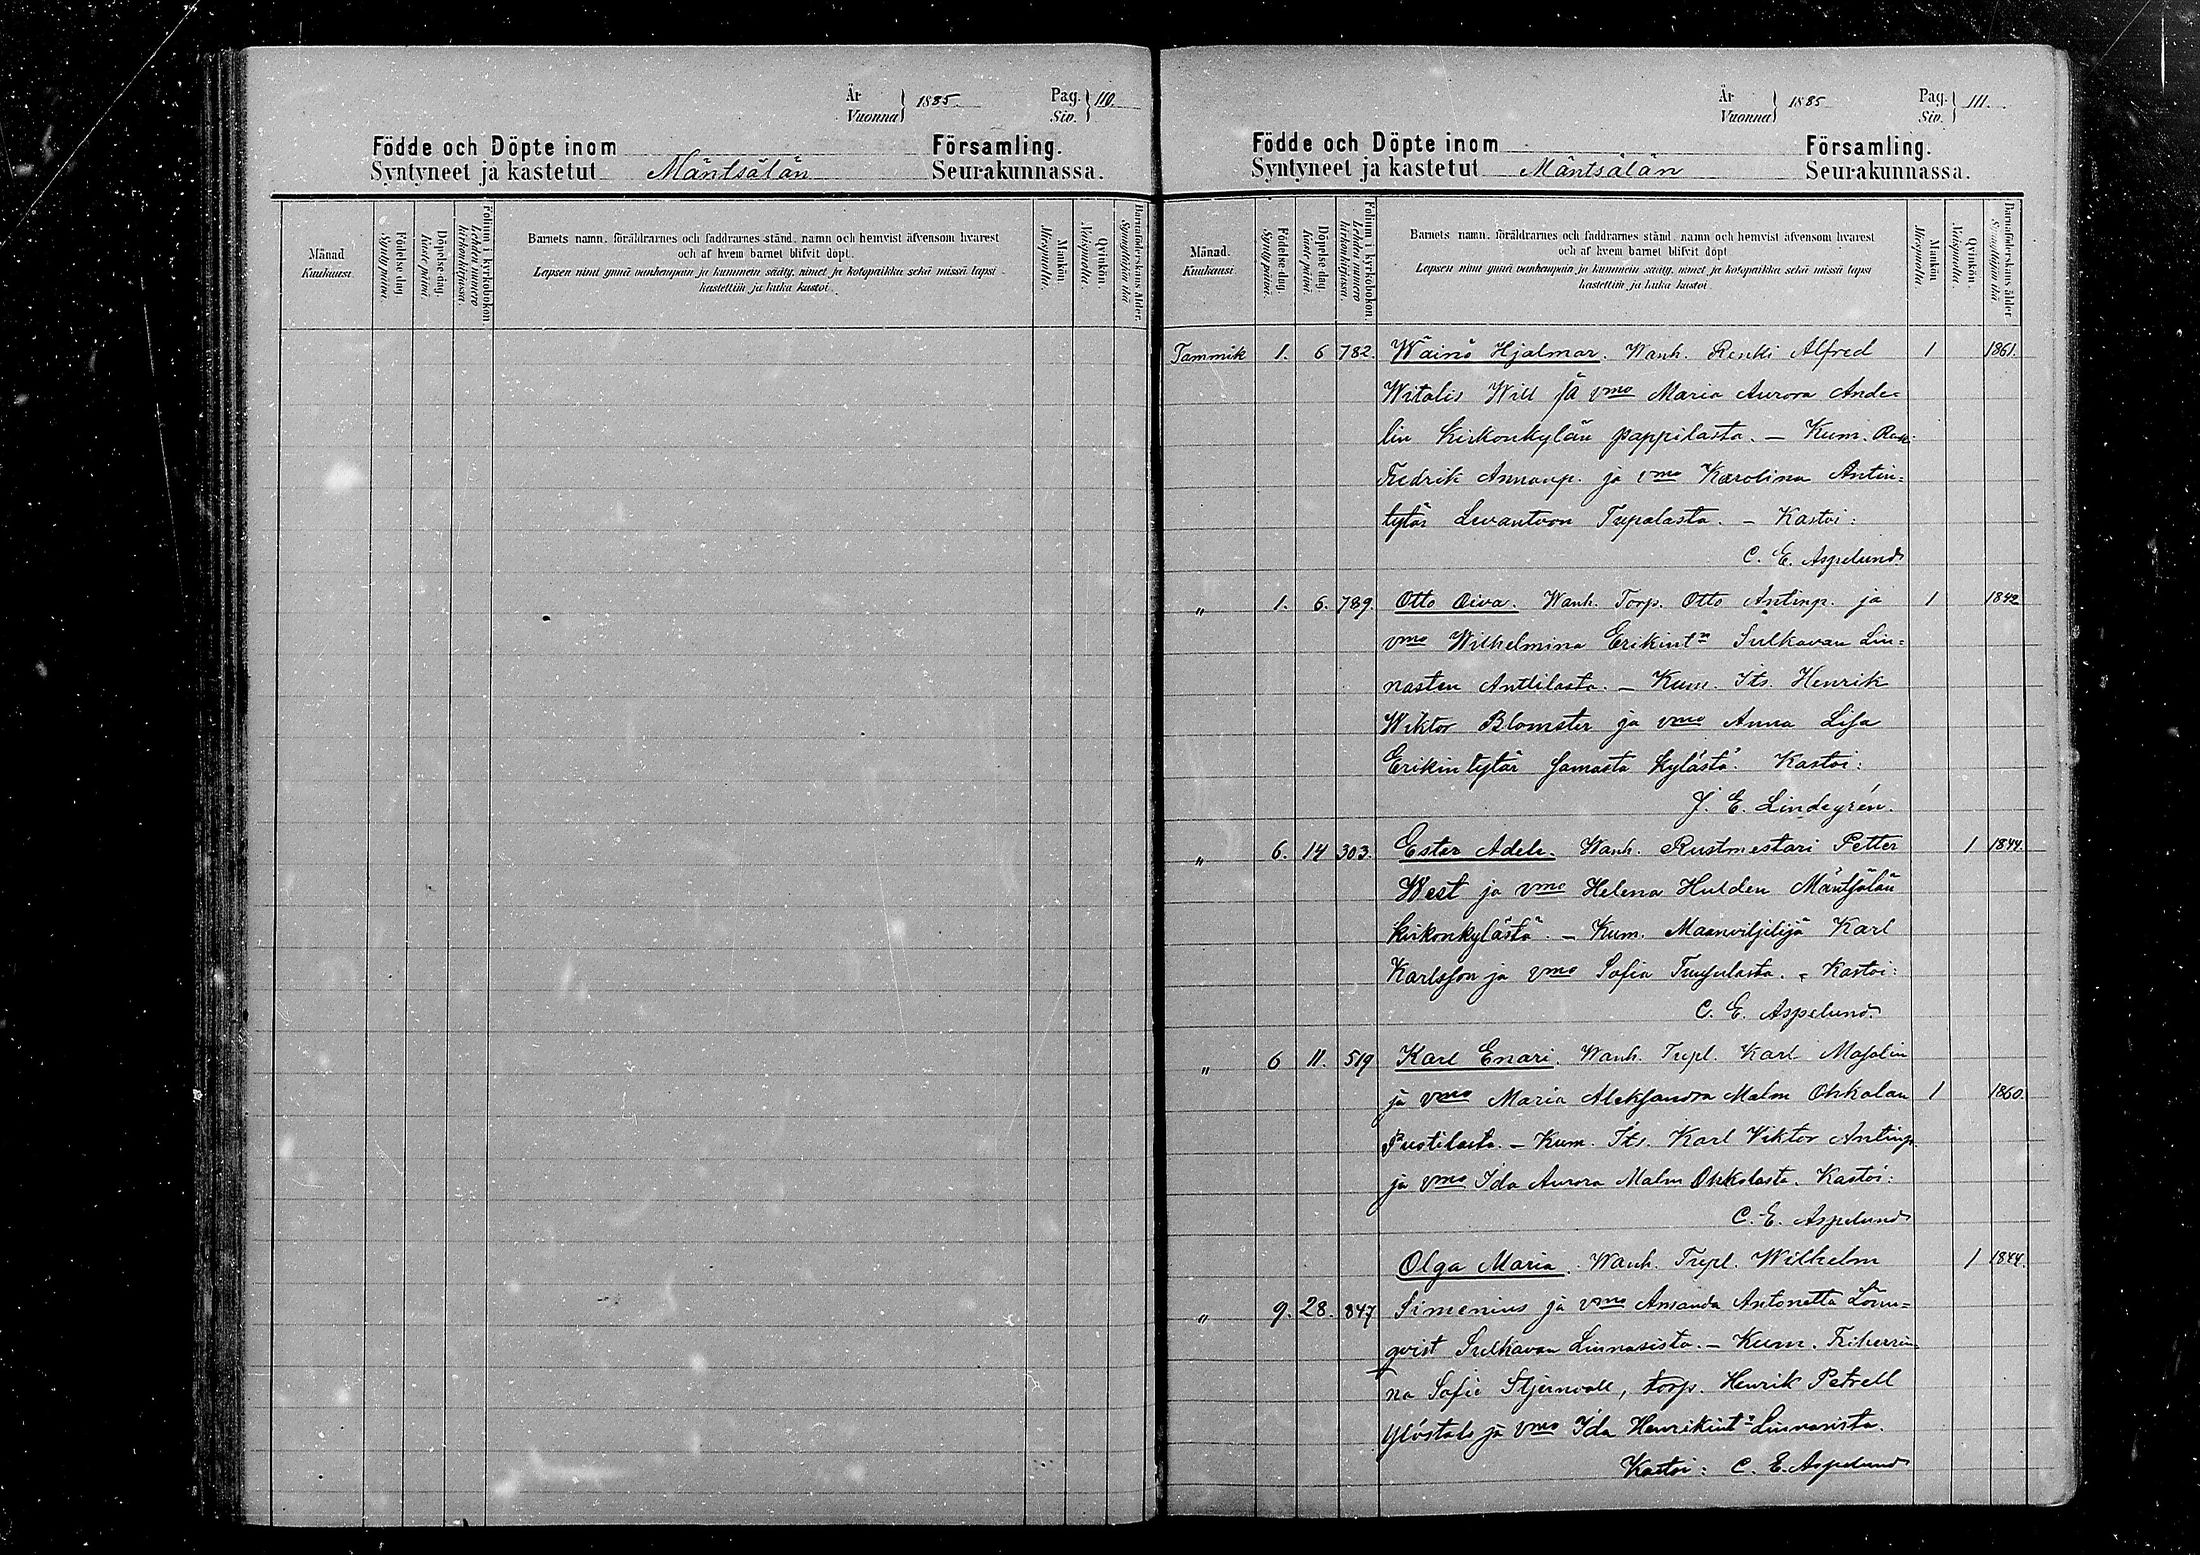 År
Vuonna } 1885.
Pag.
Siv. } 110.
Födde och Döpte inom Församling.
Syntyneet ja kastetut Mäntsälän Seurakunnassa.
Månad
Kuukausi.
Födelse-dag.
Syntypäivä.
Döpelse-dag.
Kastepäivä.
Folium i kyrkoboken.
Lehden numero kirkonkirjassa.
Barnets namn, föräldrarnes och faddrarnes stånd, namn och hemvist äfvensom hvarest
och af hvem barnet blifvit döpt.
Lapsen nimi ynnä vanhempain ja kummein sääty, nimet ja kotopaikka sekä missä lapsi
kastettiin ja kuka kastoi.
Mankön.
Miespuolia.
Qvinkön.
Naispuolia.
Barnaföderskans ålder.
Synnyttäjän ikä
År
Vuonna } 1885
Pag.
Siv. } 111.
Födde och Döpte inom Församling.
Syntyneet ja kastetut Mäntsälän Seurakunnassa.
Månad.
Kuukausi.
Födelse-dag.
Syntypäivä.
Döpelse-dag.
Kastepäivä.
Folium i kyrkoboken.
Lehden numero kirkonkirjassa.
Barnets namn, föräldrarnes och faddrarnes stånd, namn och hemvist äfvensom hvarest
och af hvem barnet blifvit döpt.
Lapsen nimi ynnä vanhempain ja kummein sääty, nimet ja kotopaikka sekä missä lapsi
kastettiin ja kuka kastoi.
Mankön.
Miespuolia
Qvinkön.
Naispuolia.
Barnaföderskans ålder
Synnyttäjän ikä
Tammik 1. 6 782. Wäinö Hjalmar. Wanh. Renki Alfred 1 1861.
Witalis Will ja vmo Maria Aurora Ande=
lin Kirkonkylän pappilasta. — Kum. Renk.
Fredrik Annanp. ja vmo Karolina Antin=
tytär Levantoon Tupalasta. — Kastoi:
C. E. Aspelund
" 1. 6. 789. Otto Oiva. Wanh. Torp. Otto Antinp. ja 1 1842
vmo Wilhelmina Erikint:r Sulkavan Lin=
nasten Anttilasta. — Kum. Its. Henrik
Wiktor Blomster ja vmo Anna Lisa
Erikintytär samasta kylästä. Kastoi:
J. E. Lindegrén.
" 6. 14 303. Ester Adele. Wanh. Rustmestari Petter 1 1844.
West ja vmo Helena Hulden Mäntsälän
kirkonkylästä. — Kum. Maanviljelijä Karl
Karlsson ja vmo Sofia. Kastoi:
C. E. Aspelund
" 6 11. 519 Karl Enari. Wanh. Trpl. Karl Masalin
ja vmo Maria Aleksandra Malm Ohkolan 1 1860.
Puotilasta. — Kum. Its. Karl Viktor Antinp
ja vmo Ida Aurora Malm Ohkolasta. Kastoi:
C. E. Aspelund
Olga Maria. Wanh. Trpl. Wilhelm 1 1844.
" 9. 28. 847 Simenius ja vmo Amanda Antonetta Lönn=
qvist Sulkavan Linnasista. — Kum. Friherrin
na Sofie Stjernvall, torp. Henrik Petrell
Ylöstalo ja vmo Ida Henrikint:r Linnasista.
Kastoi: C. E. Aspelund